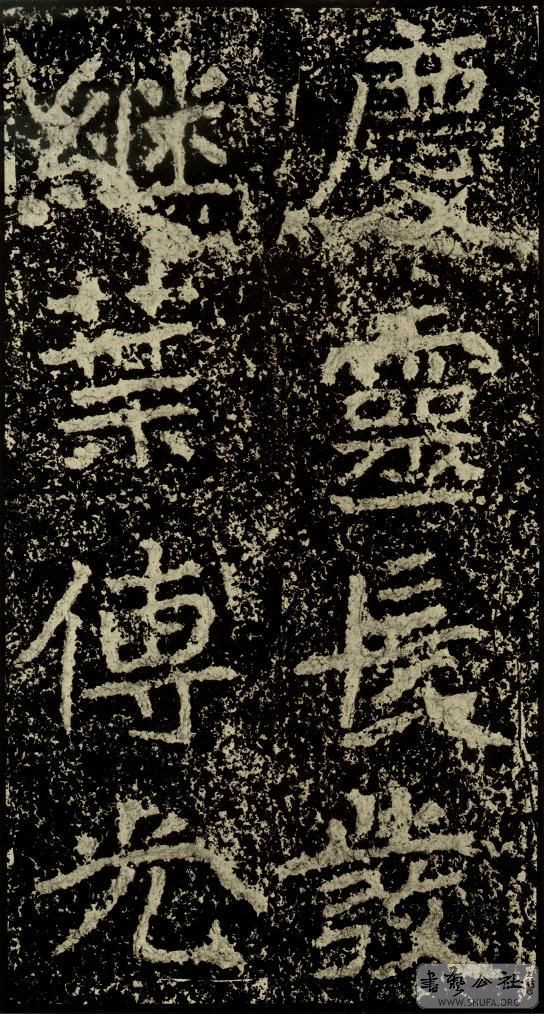 慶靈長發
継葉傳光
書藝公社
WWW.SHUFA.ORG